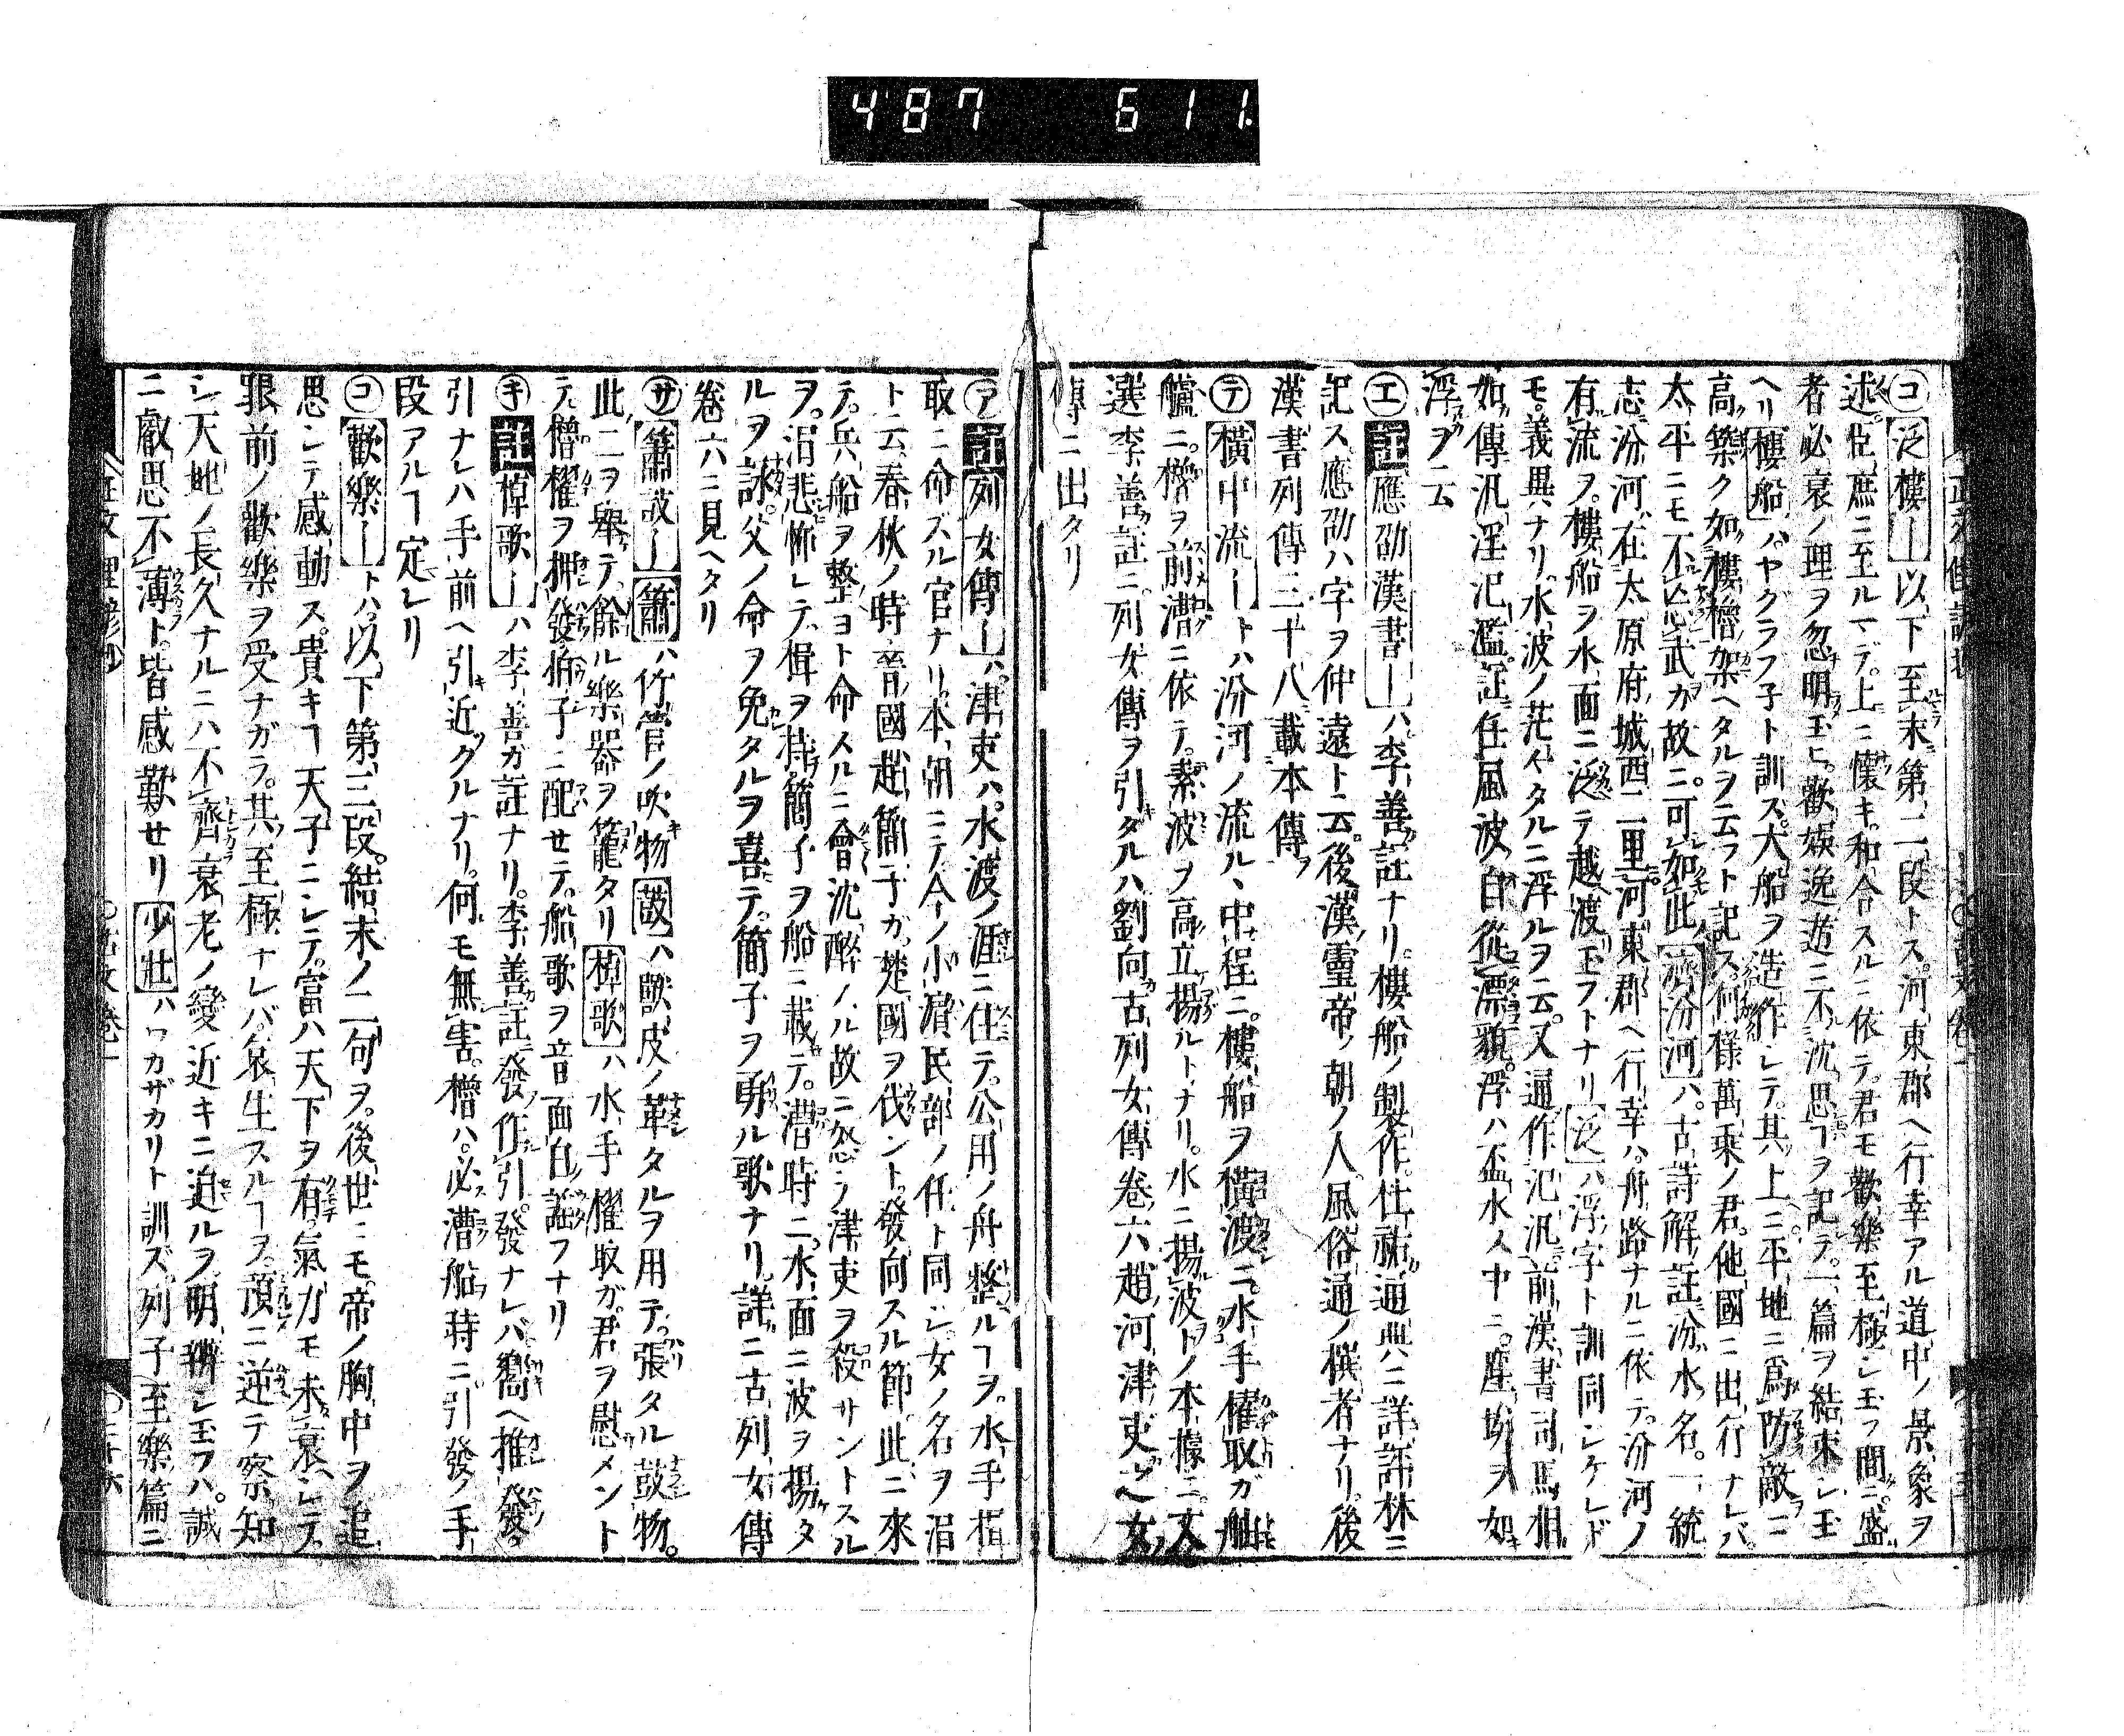 487 611
㋙泛樓―以下至末第二段トス河東郡ヘ行幸アル道中ノ景象ヲ
述臣庶ニ至ルマデ上ニ懷キ和合スルニ依テ君モ歡樂至極シ玉フ間ニ盛
者必衰ノ理ヲ忽明玉ヒ歡娯逸遊ニ不沈思ヿヲ記テ一篇ヲ結束シ玉
ヘリ樓船ハヤグラフ子ト訓ス大船ヲ造作シテ其上ニ平地ニ爲防敵ヲニ
高築ク如樓櫓架ヘタルヲ云フト記ス何樣萬乘ノ君他國ニ出行ナレバ
太平ニモ不忘武カ故ニ可如此濟汾河ハ古詩解註汾水名一統
志汾河在太原府城西二里河東郡ヘ行幸ハ舟路ナルニ依テ汾河ノ
有流ヲ樓船ヲ水面ニ泛テ越渡玉フトナリ泛ハ浮字ト訓同シケレドモ
モ義異ナリ水波ノ茫々タルニ浮ルヲ云又通作氾汎前漢書司馬相
如傳汎淫氾濫註任風波自從漂貌浮ハ盃水ノ中ニ塵埃ヲ如
浮ヲ云
㋓註應劭漢書―ハ李善註ナリ樓船ノ製作仕祐通典ニ詳許林ニ
記ス應劭ハ字ヲ仲遠ト云後漢靈帝ノ朝ノ人風俗通ノ撰者ナリ後
漢書列傳三十八載本傳
㋢橫中流―トハ汾河ノ流ル、中程ニ樓船ヲ橫渡ニ水手櫂取ガ舳
艫ニ櫓ヲ前漕ニ依テ素波ヲ高立揚ルトナリ水ニ揚波トノ本據ニ文
選李善註ニ列女傳ヲ引タルハ劉向古列女傳卷六趙河津吏ガ女
傳ニ出タリ
㋐註列女傳―ハ津吏ハ水渡ノ涯ニ住テ公用ノ舟整ルヿヲ水手楫
取ニ命ズル官ナリ本朝ニテ今ノ小濱民部ノ任ト同シ女ノ名ヲ涓
ト云春秋ノ時晉國趙簡子ガ楚國ヲ伐ント發向スル節此ニ來
テ兵船ヲ整ヨト命スルニ會沈醉ノル故ニ怒テ津吏ヲ殺サントスル
ヲ涓悲怖レテ楫ヲ持簡子ヲ船ニ載テ漕時ニ水面ニ波ヲ揚タ
ルヲ詠父ノ命ヲ免タルヲ喜テ簡子ヲ勇ル歌ナリ詳ニ古列女傳
卷六ニ見ヘタリ
㋚簫鼓―簫ハ竹管ノ吹物鼓ハ獸皮ノ革タルヲ用テ張タル鼓物
此二ヲ舉テ餘ル樂器ヲ籠タリ棹歌ハ水手櫂取ガ君ヲ慰メント
テ櫓櫂ヲ押發拍子ニ配セテ船歌ヲ音面白謡フナリ
㋖註棹歌―ハ李善カ註ナリ李善註發作引發ナレバ嚮ヘ推發
引ナレハ手前ヘ引近クルナリ何モ無害櫓ハ必漕船時ニ引發ノ手
段アルヿ定レリ
㋙歡樂―トハ以下第三段結末ノ二句ヲ後世ニモ帝ノ胸中ヲ追
思シテ感動ス貴キヿ天子ニシテ富ハ天下ヲ有氣力モ未衰シテ
眼前ノ歡樂ヲ受ナガラ其至極ナレバ哀生スルヿヲ預ニ逆テ察知
シ天地ノ長久ナルニハ不齊衰老ノ變近キニ迫ルヲ明辨シ玉フハ誠
ニ叡思不薄ト皆感歎セリ少壯ハワカザカリト訓ズ列子至樂篇ニ